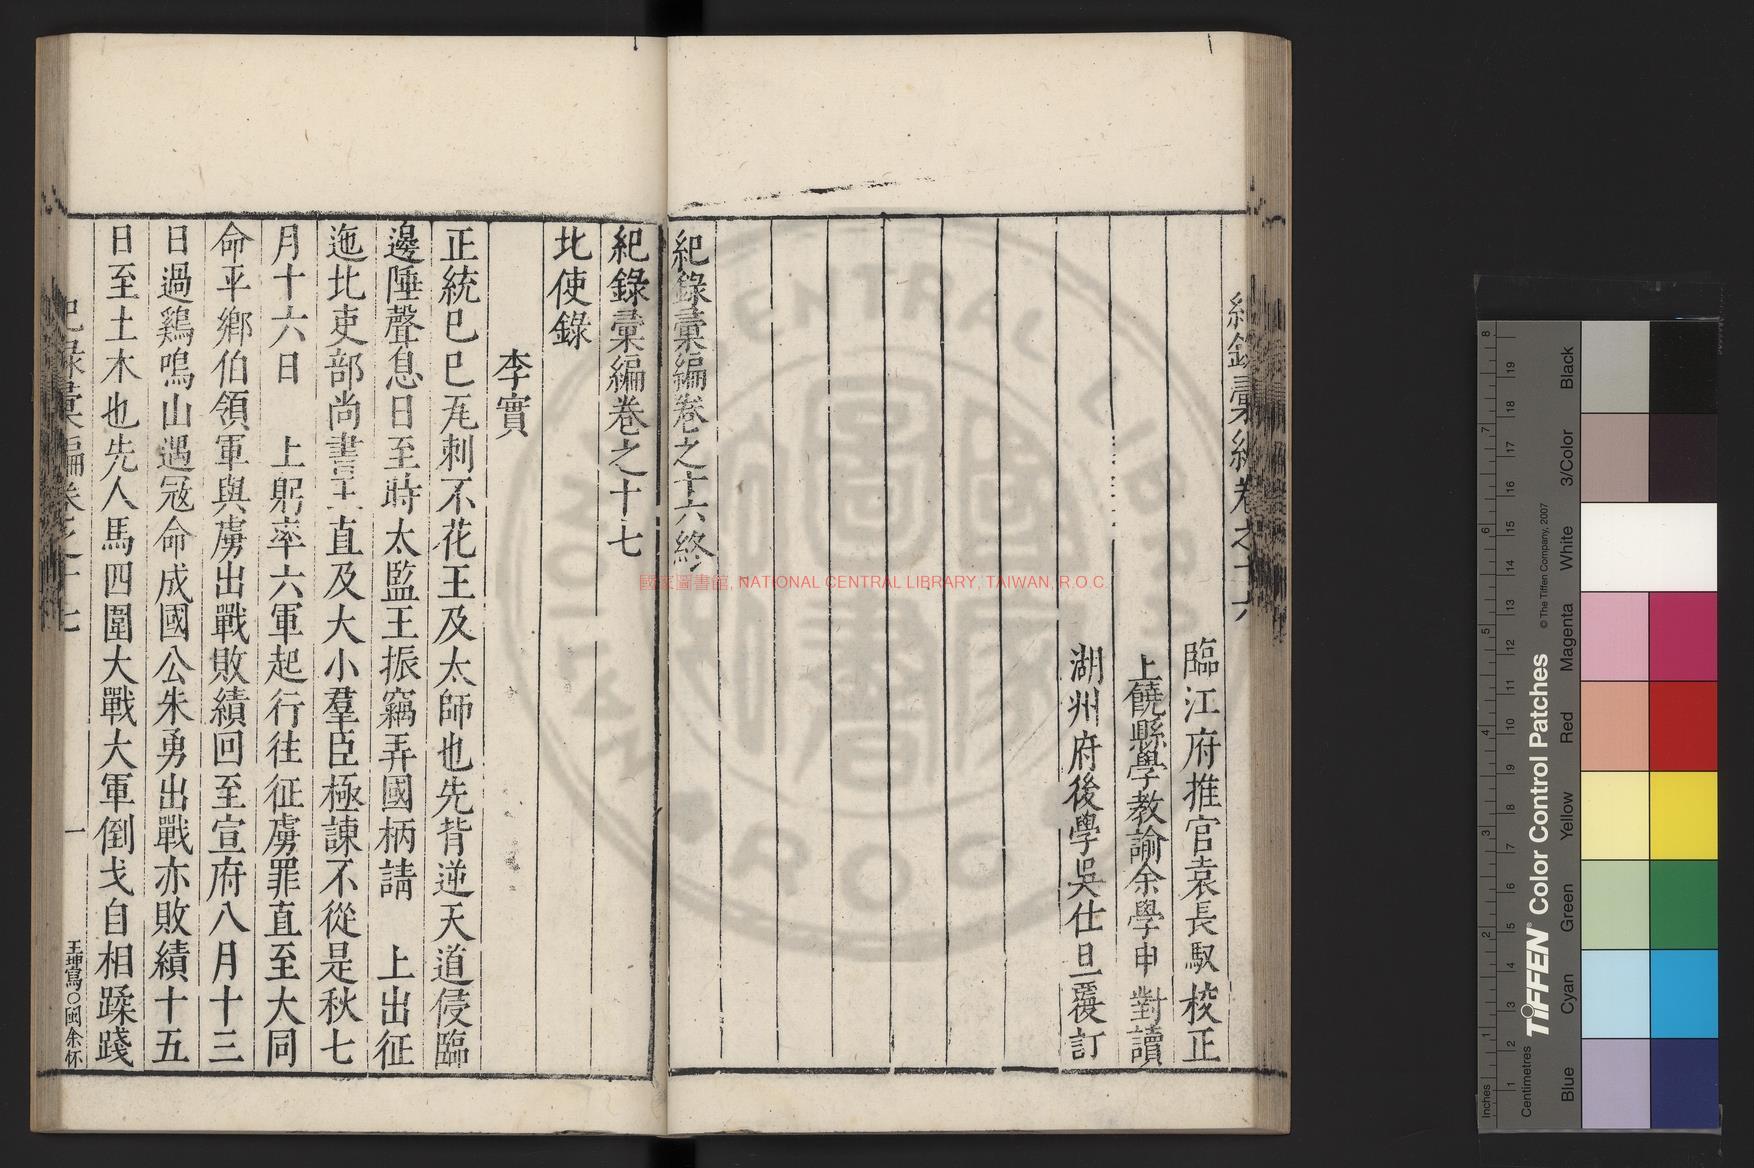 臨江府推官袁長馭校正
上饒縣學教諭余學申對讀
湖州府後學吳仕旦覆訂
紀錄彙編卷之十六終
紀錄彙編卷之十七
北使錄
李實
正統己巳瓦刺不花王及太師也先背逆天道侵臨
邊陲聲息日至時太監王振竊弄國柄請 上出征
迤北吏部尚書王直及大小羣臣極諫不從是秋七
月十六日 上躬率六軍起行往征虜罪直至大同
命平鄉伯領軍與虜出戰敗績回至宣府八月十三
日過鷄鳴山遇冦命成國公朱勇出戰亦敗績十五
日至土木也先人馬四圍大戰大軍倒戈自相蹂踐
紀錄彙編卷之十七
一
國家圖書館, NATIONAL CENTRAL LIBRARY, TAIWAN, R.O.C.
TIFFEN Color Control Patches
© The Tiffen Company, 2007
Inches
Centimetres
Blue
Cyan
Green
Yellow
Red
Magenta
White
3/Color
Black